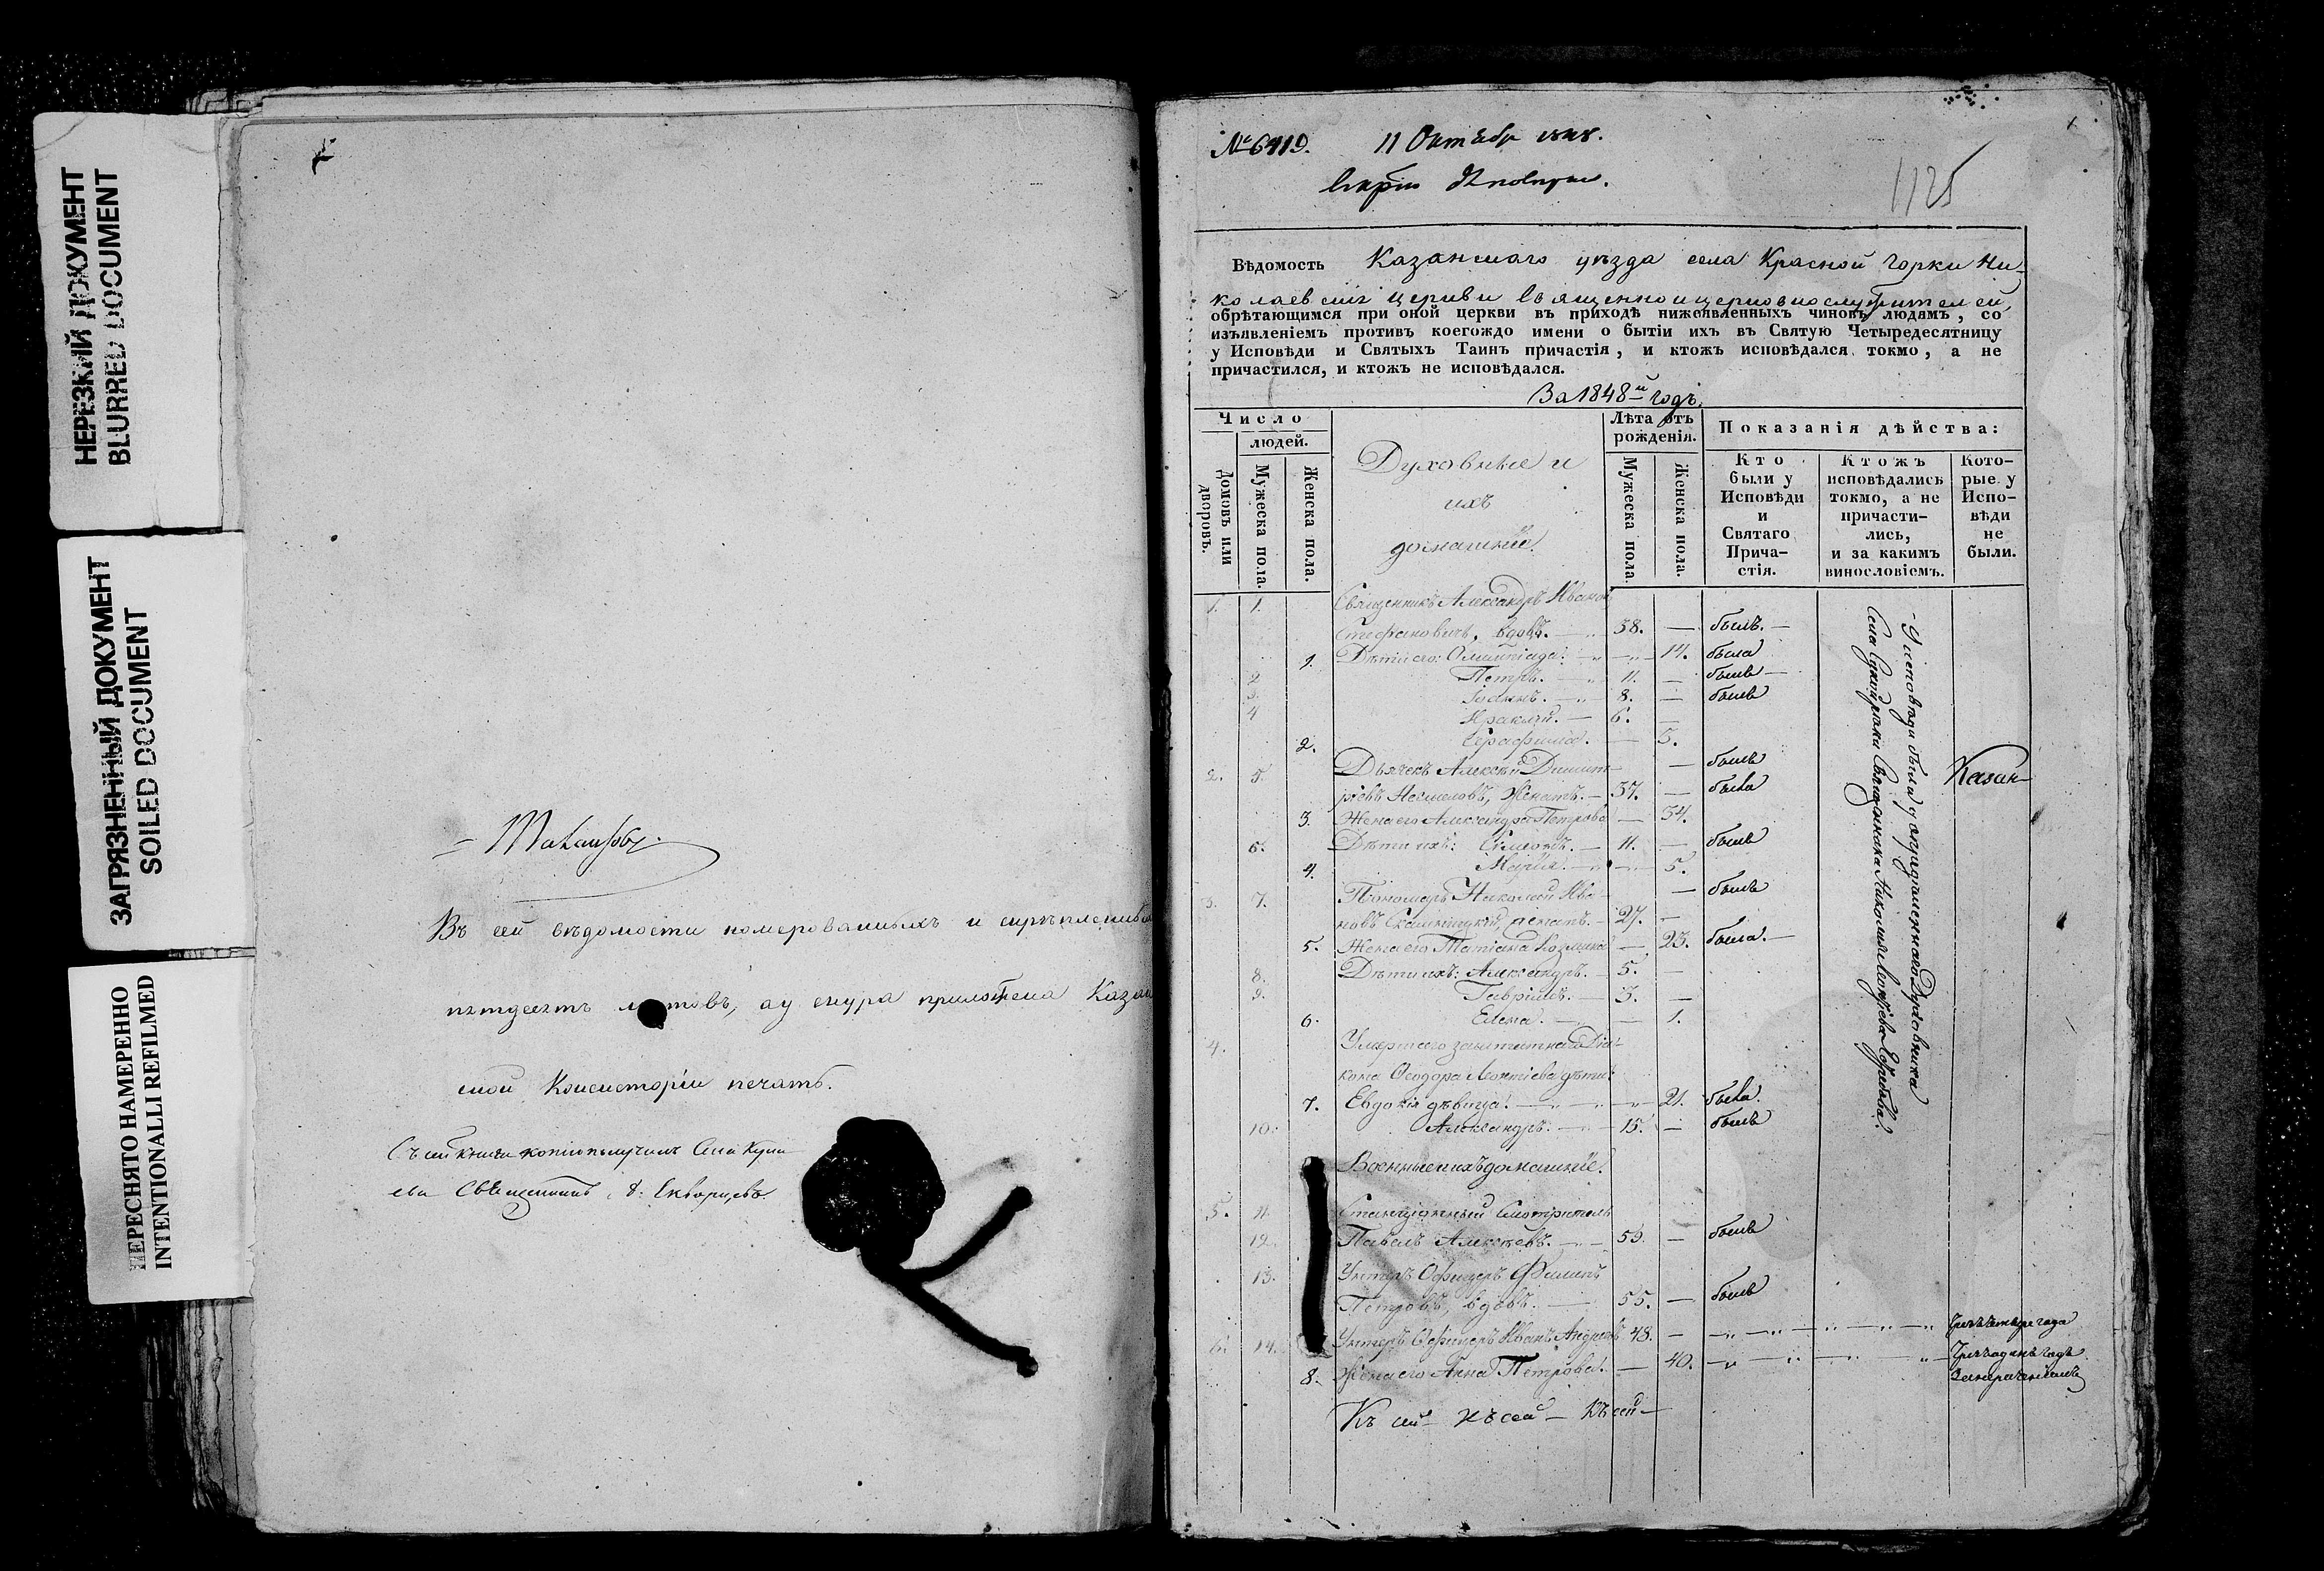 НЕРЕЗКИЙ ДОКУМЕНТ
BLURRED DOCUMENT
ЗАГРЯЗНЕННЫЙ ДОКУМЕНТ
SOILED DOCUMENT
ПЕРЕСНЯТО НАМЕРЕННО
INTENTIONALLI REFILMED
Въ сей вѣдомости номерованныхъ и
пятдесятъ листовъ, а у снура приложена Казан
ской Консисторіи печать.
Съ сей книги копію получилъ Села
Священникъ
№ 6419. 11 Октября 1848.
1125
Вѣдомость Казанскаго уѣзда села Красной Горки Ни-
колаевской церкви Священно и церковнослужителей,
обрѣтающимся при оной церкви въ приходѣ нижеявленныхъ чиновъ людямъ, со
изъявленіемъ противъ коегождо имени о бытіи ихъ въ Святую Четыредесятницу
у Исповѣди и Святыхъ Таинъ причастія, и ктожъ исповѣдался токмо, а не
причастился, и ктожъ не исповѣдался.
За 1848й годъ.
Число
людей.
Домовъ или дворовъ.
Мужеска пола.
Женска пола.
Духовные и
ихъ
домашніе.
Лѣта отъ
рожденія.
Мужеска пола.
Женска пола.
Показанія дѣйства:
Кто
были у
Исповѣди
и
Святаго
Прича-
стія.
Ктожъ
исповѣдались
токмо, а не
причасти-
лись,
и за какимъ
винословіемъ.
Кото-
рые у
Испо-
вѣди
не
были.
1. 1. Священникъ Александръ Иванов
Стефановичъ, вдовъ. — 38. — былъ. —
1. Дѣти его: Олимпіада. — 14. была
2 Петръ. — 11. — былъ —
3. Іоаннъ. — 8. — былъ
4 Ираклій. — 6. —
2. Серафима. — 3.
2. 5. Дьячекъ Алексѣй Димит- — былъ
ріевъ Несмеловъ, женатъ. — 37. — была
3. Жена его Александра Петрова — 34.
6. Дѣти ихъ: Симеонъ. — 11. — былъ
4. Марія. — 5.
3. 7. Пономарь Николай Ива- — былъ
новъ женатъ. — 27. —
5. Жена его Татіана Козмина — 23. была. —
8. Дѣти ихъ: Александръ. — 5. —
9. Гавріилъ. — 3. —
6. Елена. — 1.
4. Умершаго заштатнаго Діа-
кона Ѳеодора Леонтіева дѣти:
7. Евдокія дѣвица. — 21. была.
10. Александръ. — 15. — былъ
У исповѣди были у Духовника
Села Священника Николая
Казан-
Военные и ихъ домашніе.
5. 11. Станціонный Смотритель
12. Павелъ Алексѣевъ. — 59. — былъ
13. Унтеръ Офицеръ Филипъ
Петровъ, вдовъ. — 55. — былъ
6. 14. Унтеръ Офицеръ Иванъ Андреевъ 48. —
8. Жена его Анна Петрова. — 40. —
Къ сей — къ сей — къ сей —